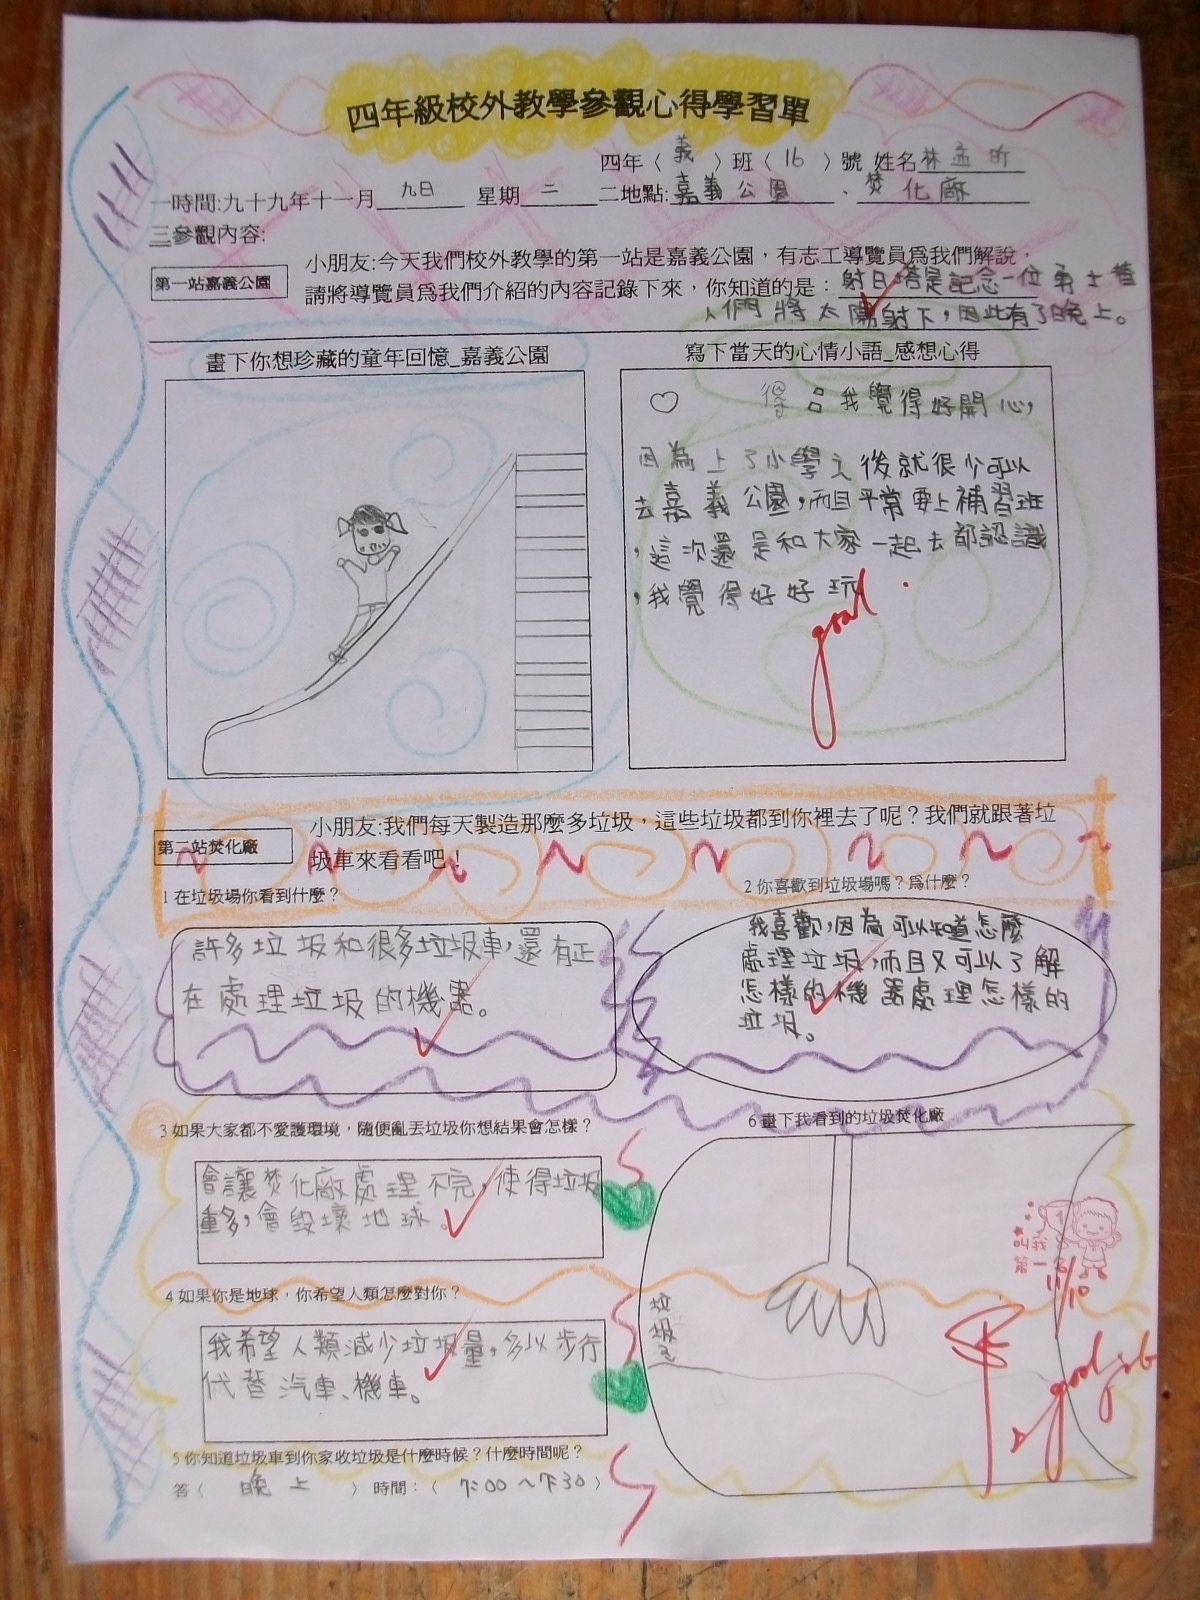 四年級校外教學參觀心得學習單
四年〈義〉班〈16〉號 姓名林孟昕
一時間:九十九年十一月九日 星期二 二地點:嘉義公園、焚化廠
三參觀內容:
第一站嘉義公園
小朋友:今天我們校外教學的第一站是嘉義公園，有志工導覽員為我們解說，
請將導覽員為我們介紹的內容記錄下來，你知道的是：射日塔是記念一位勇士替
人們將太陽射下，因此有了晚上。
畫下你想珍藏的童年回憶_嘉義公園
寫下當天的心情小語_感想心得
我覺得好開心，
因為上了小學之後就很少可以
去嘉義公園，而且平常要上補習班
，這次還是和大家一起去都認識
，我覺得好好玩
good
第二站焚化廠
小朋友:我們每天製造那麼多垃圾，這些垃圾都到你裡去了呢？我們就跟著垃
圾車來看看吧！
1 在垃圾場你看到什麼？
許多垃圾和很多垃圾車，還有正
在處理垃圾的機器。
2 你喜歡到垃圾場嗎？為什麼？
我喜歡，因為可以知道怎麼
處理垃圾，而且又可以了解
怎樣的機器處理怎樣的
垃圾。
3 如果大家都不愛護環境，隨便亂丟垃圾你想結果會怎樣？
會讓焚化廠處理不完，使得垃圾
量多，會毀壞地球。
4 如果你是地球，你希望人類怎麼對你？
我希望人類減少垃圾量，多以步行
代替汽車、機車。
5 你知道垃圾車到你家收垃圾是什麼時候？什麼時間呢？
答〈晚上〉時間：〈7:00～7:30〉
6 畫下我看到的垃圾焚化廠
垃圾
叫我
第一名
11/10
good job